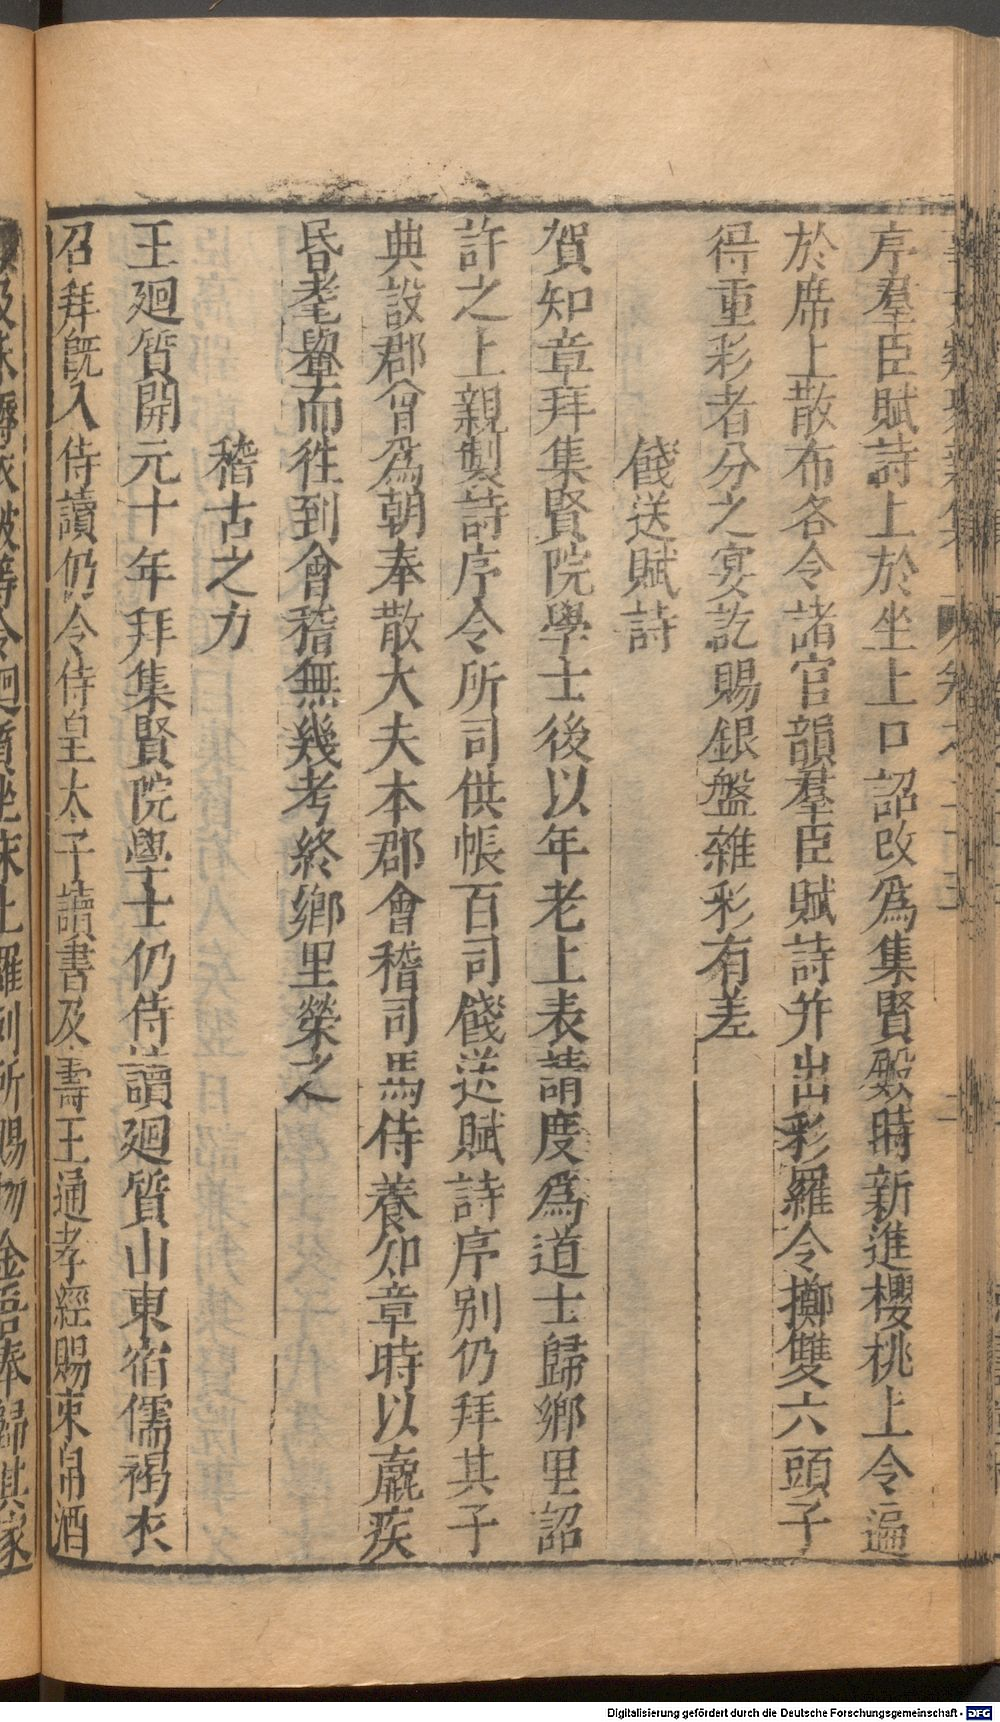 序羣臣賦詩上於坐上口詔改爲集賢殿時新進櫻桃上令遍
於席上散布各令諸官韻羣臣賦詩并出彩羅令擲雙六頭子
得重彩者分之宴訖賜銀盤雜彩有差
餞送賦詩
賀知章拜集賢院學士後以年老上表請度爲道士歸鄉里詔
許之上親製詩序令所司供帳百司餞送賦詩序別仍拜其子
典設郡曾爲朝奉散大夫本郡會稽司馬侍養知章時以羸疾
昏耄轝而徃到會稽無幾考終鄉里榮之
稽古之力
王廻質開元十年拜集賢院學士仍侍讀廻質山東宿儒褐衣
召拜旣入侍讀仍令侍皇太子讀書及壽王通孝經賜束帛酒
Digitalisierung gefördert durch die Deutsche Forschungsgemeinschaft - DFG